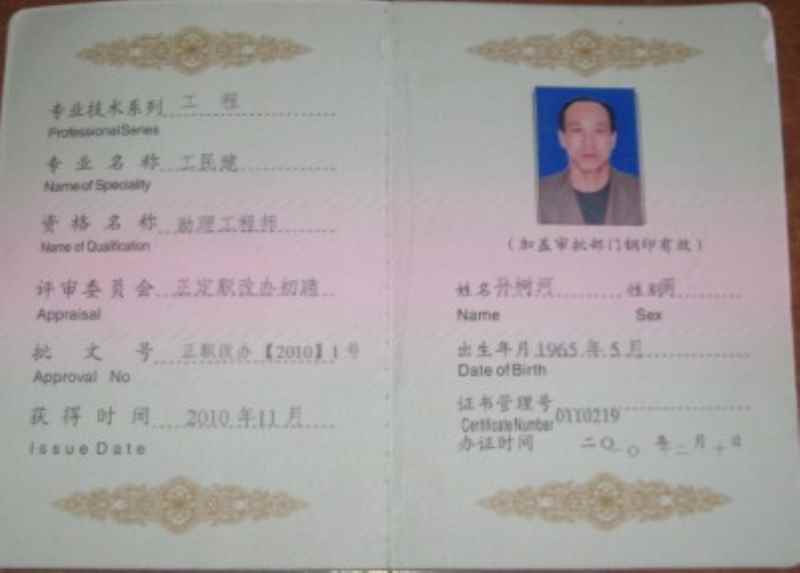 专业技术系列 工 程
Professional Series
专业名称 工民建
Name of Speciality
资格名称 助理工程师
Name of Qualification
评审委员会 正定职改办初聘
Appraisal
批文号 正职改办【2010】1号
Approval No
获得时间 2010年11月
Issue Date
(加盖审批部门钢印有效)
姓名 孙树河 性别 男
Name Sex
出生年月 1965年5月
Date of Birth
证书管理号 0110219
Certificate Number
办证时间 二〇 〇 年二月十日